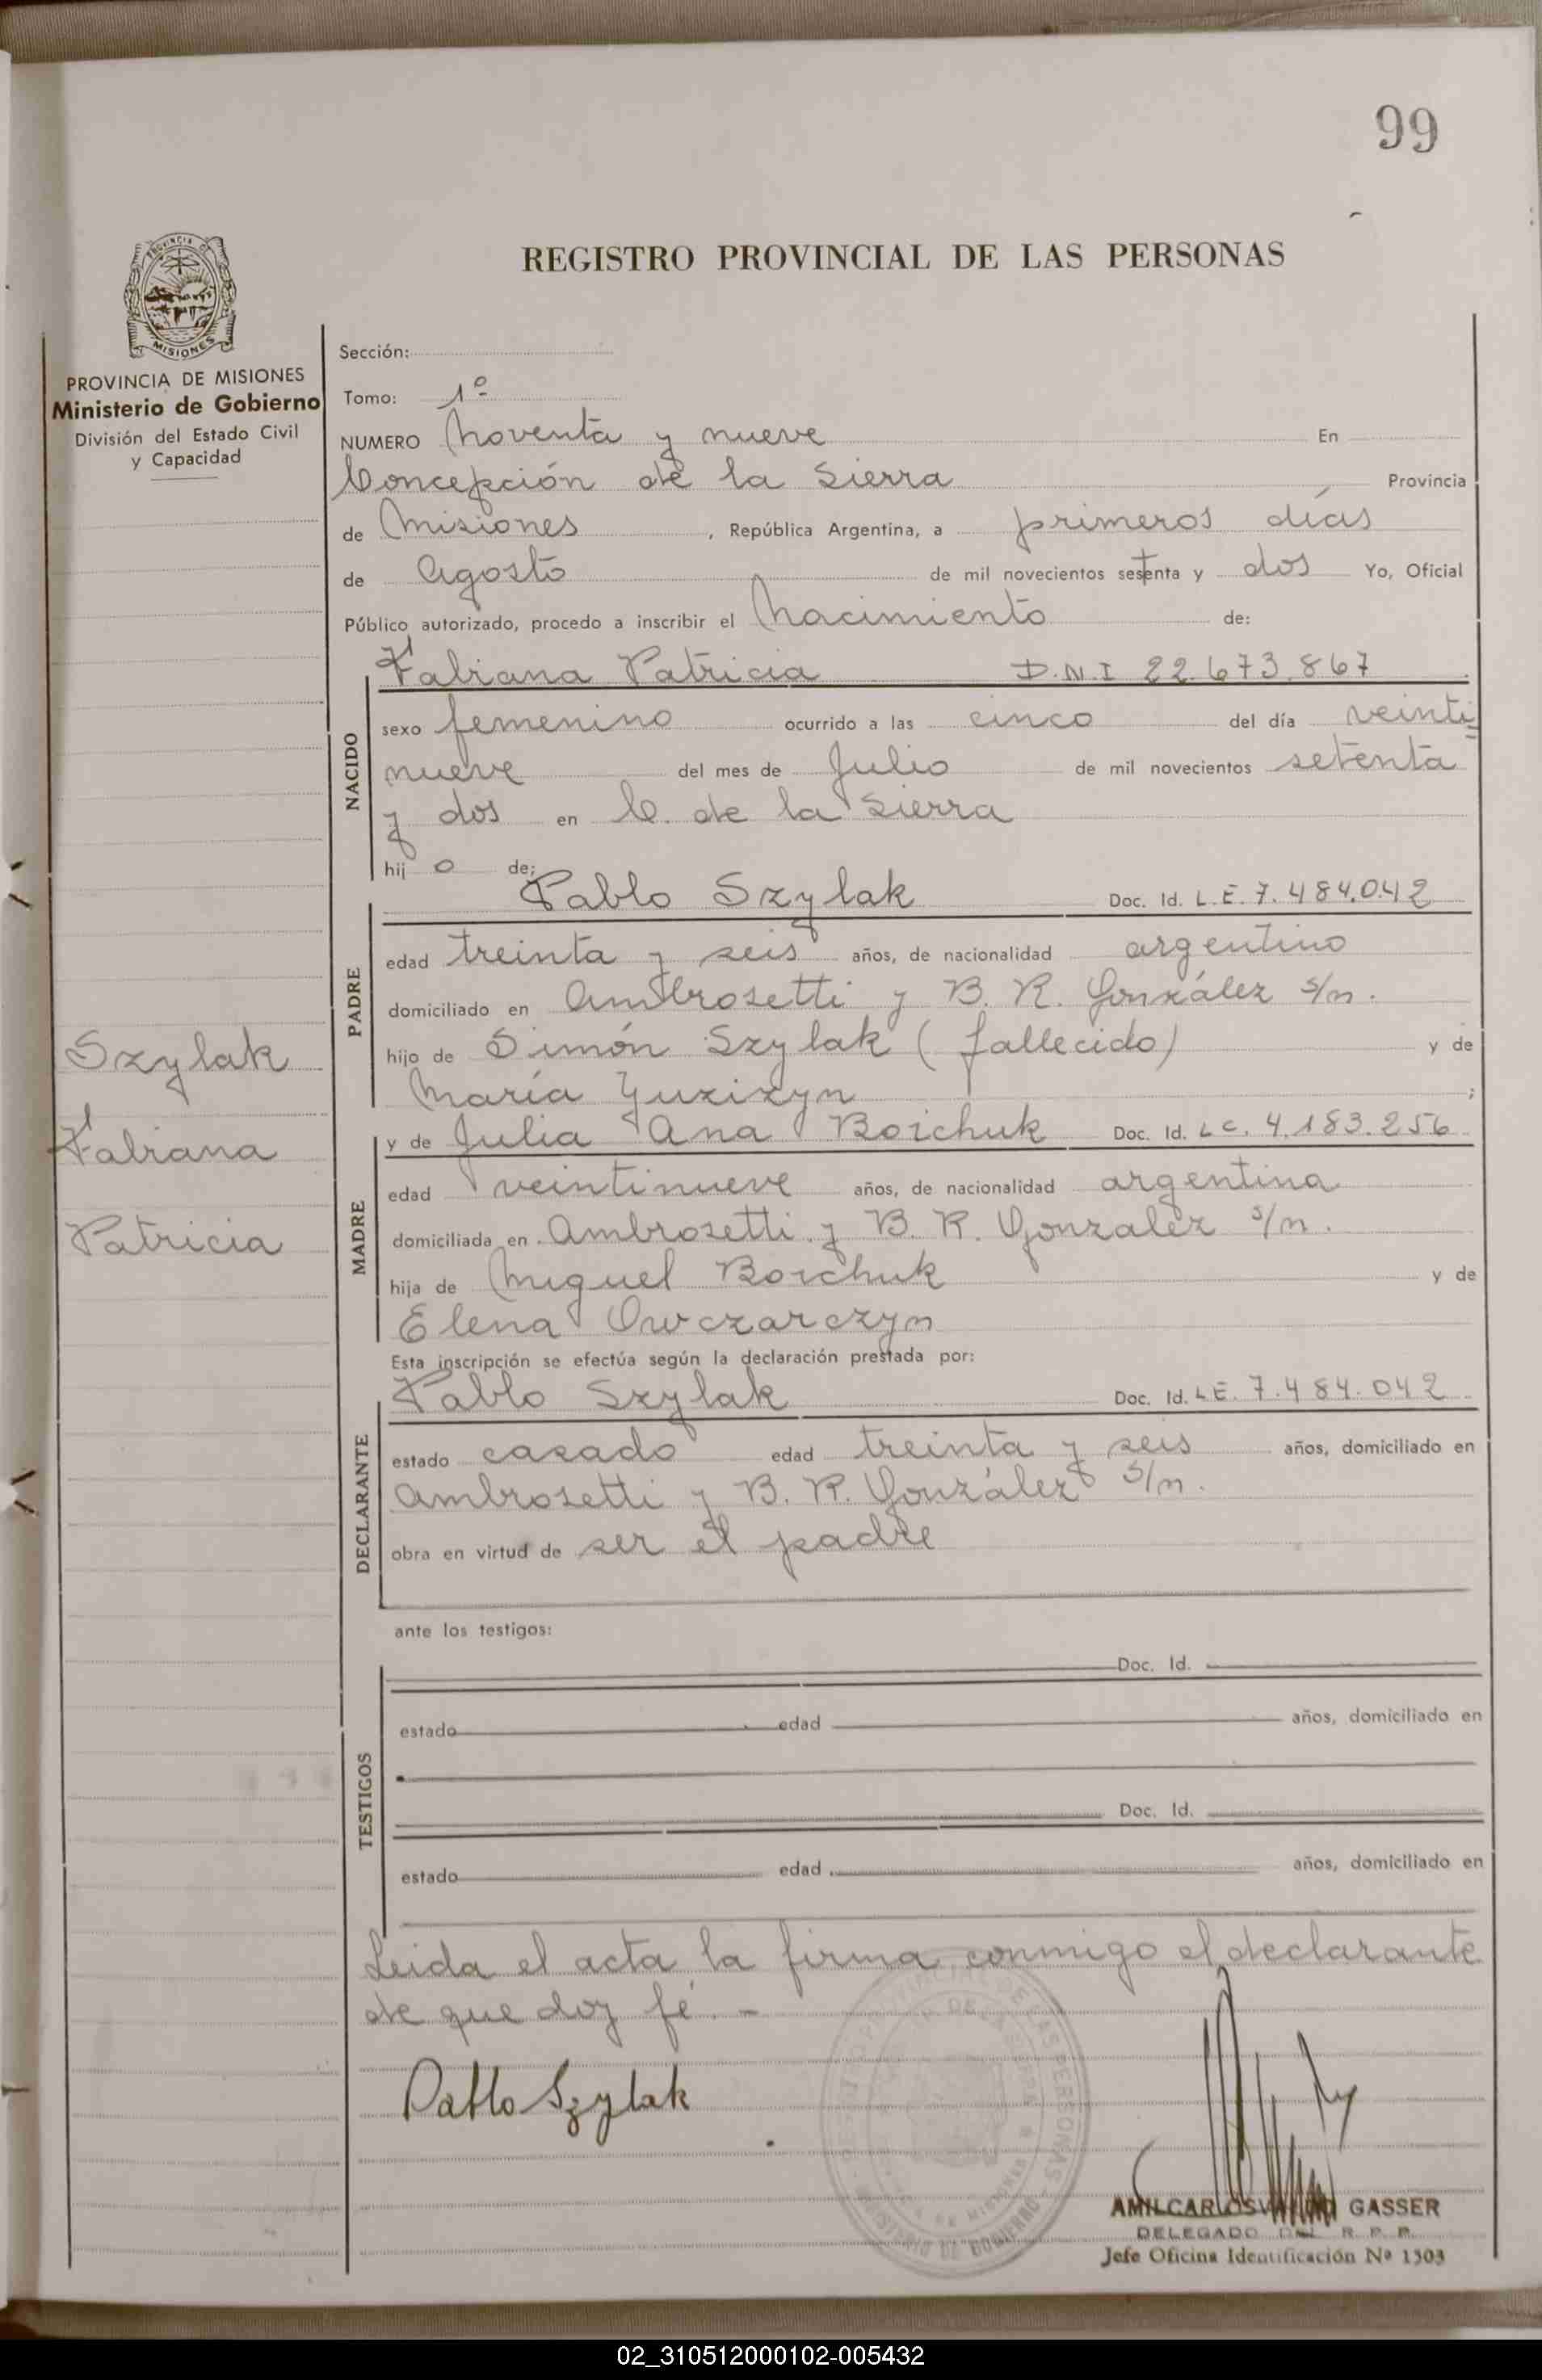 99
REGISTRO PROVINCIAL DE LAS PERSONAS
PROVINCIA DE
MISIONES
PROVINCIA DE MISIONES
Ministerio de Gobierno
División del Estado Civil
y Capacidad
Sección:
Tomo: 1º
NUMERO Noventa y nueve En
Concepción de la Sierra Provincia
de Misiones , República Argentina, a primeros días
de Agosto de mil novecientos setenta y dos Yo, Oficial
Público autorizado, procedo a inscribir el Nacimiento de:
Fabiana Patricia D.N.I 22.673.867
NACIDO
sexo femenino ocurrido a las cinco del día veinti
nueve del mes de Julio de mil novecientos setenta
y dos en C. de la Sierra
hij o de:
Pablo Szylak Doc. Id. L.E. 7.484.042
PADRE
edad treinta y seis años, de nacionalidad argentino
domiciliado en Ambrosetti y B. R. González s/n.
hijo de Simón Szylak (fallecido) y de
María ;
y de Julia Ana Boichuk Doc. Id. L C. 4.183.256
MADRE
edad veintinueve años, de nacionalidad argentina
domiciliada en Ambrosetti y B. R. Gonzalez s/n.
hija de Miguel Boichuk y de
Elena Owczarczyn
Esta inscripción se efectúa según la declaración prestada por:
Pablo Szylak Doc. Id. L E. 7.484.042
DECLARANTE
estado casado edad treinta y seis años, domiciliado en
Ambrosetti y B. R. González s/n.
obra en virtud de ser el padre
ante los testigos:
Doc. Id.
TESTIGOS
estado edad años, domiciliado en
Doc. Id.
estado edad años, domiciliado en
Leida el acta la firma conmigo el declarante
de que doy fé. -
Pablo Szylak
Szylak
Fabiana
Patricia
AMILCAR GASSER
DELEGADO DEL R. P. P.
Jefe Oficina Identificación Nº 1303
02_310512000102-005432